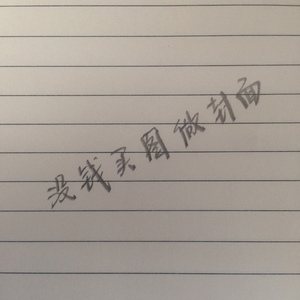 没钱买图做封面